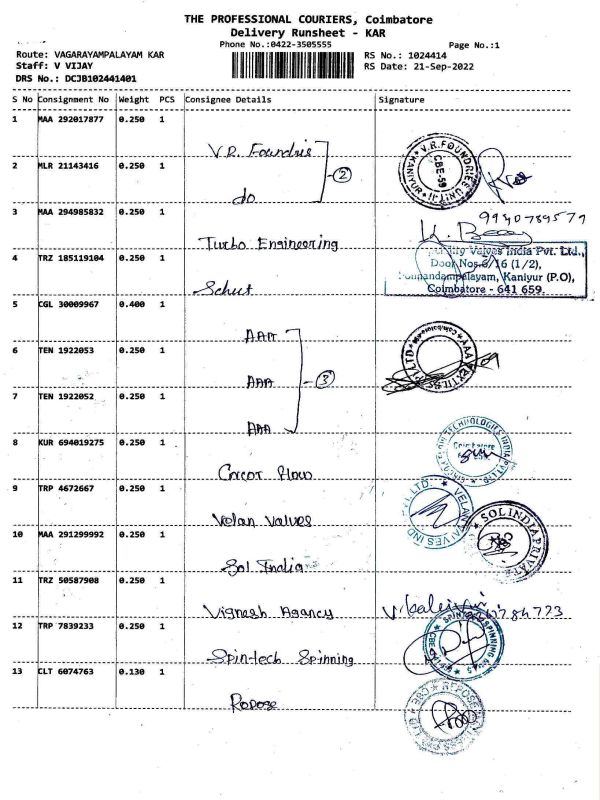 THE PROFESSIONAL COURIERS, Coimbatore
Delivery Runsheet - KAR
Phone No.:0422-3505555
Page No.:1
Route: VAGARAYAMPALAYAM KAR
RS No.: 1024414
Staff: V VIJAY
RS Date: 21-Sep-2022
DRS No.: DCJB102441401
S No Consignment No Weight PCS Consignee Details Signature
1 MAA 292017877 0.250 1
V.R. Foundris
V.R. FOUNDRIES UNIT-II KANIYUR CBE-59
2 MLR 21143416 0.250 1
do
②
3 MAA 294985832 0.250 1
Turbo Engineering
4 TRZ 185119104 0.250 1
Schut
Valves India Pvt. Ltd.,
Door Nos.6/16 (1/2),
Kaniyur (P.O),
Coimbatore - 641 659.
5 CGL 30009967 0.400 1
AAA
6 TEN 1922053 0.250 1
AAA
③
7 TEN 1922052 0.250 1
AAA
8 KUR 694019275 0.250 1
Circor Flow
9 TRP 4672667 0.250 1
Velan Valves
10 MAA 291299992 0.250 1
Sol India
11 TRZ 50587908 0.250 1
Vignesh Agancy
12 TRP 7839233 0.250 1
Spin-tech Spinning
13 CLT 6074763 0.130 1
Repose